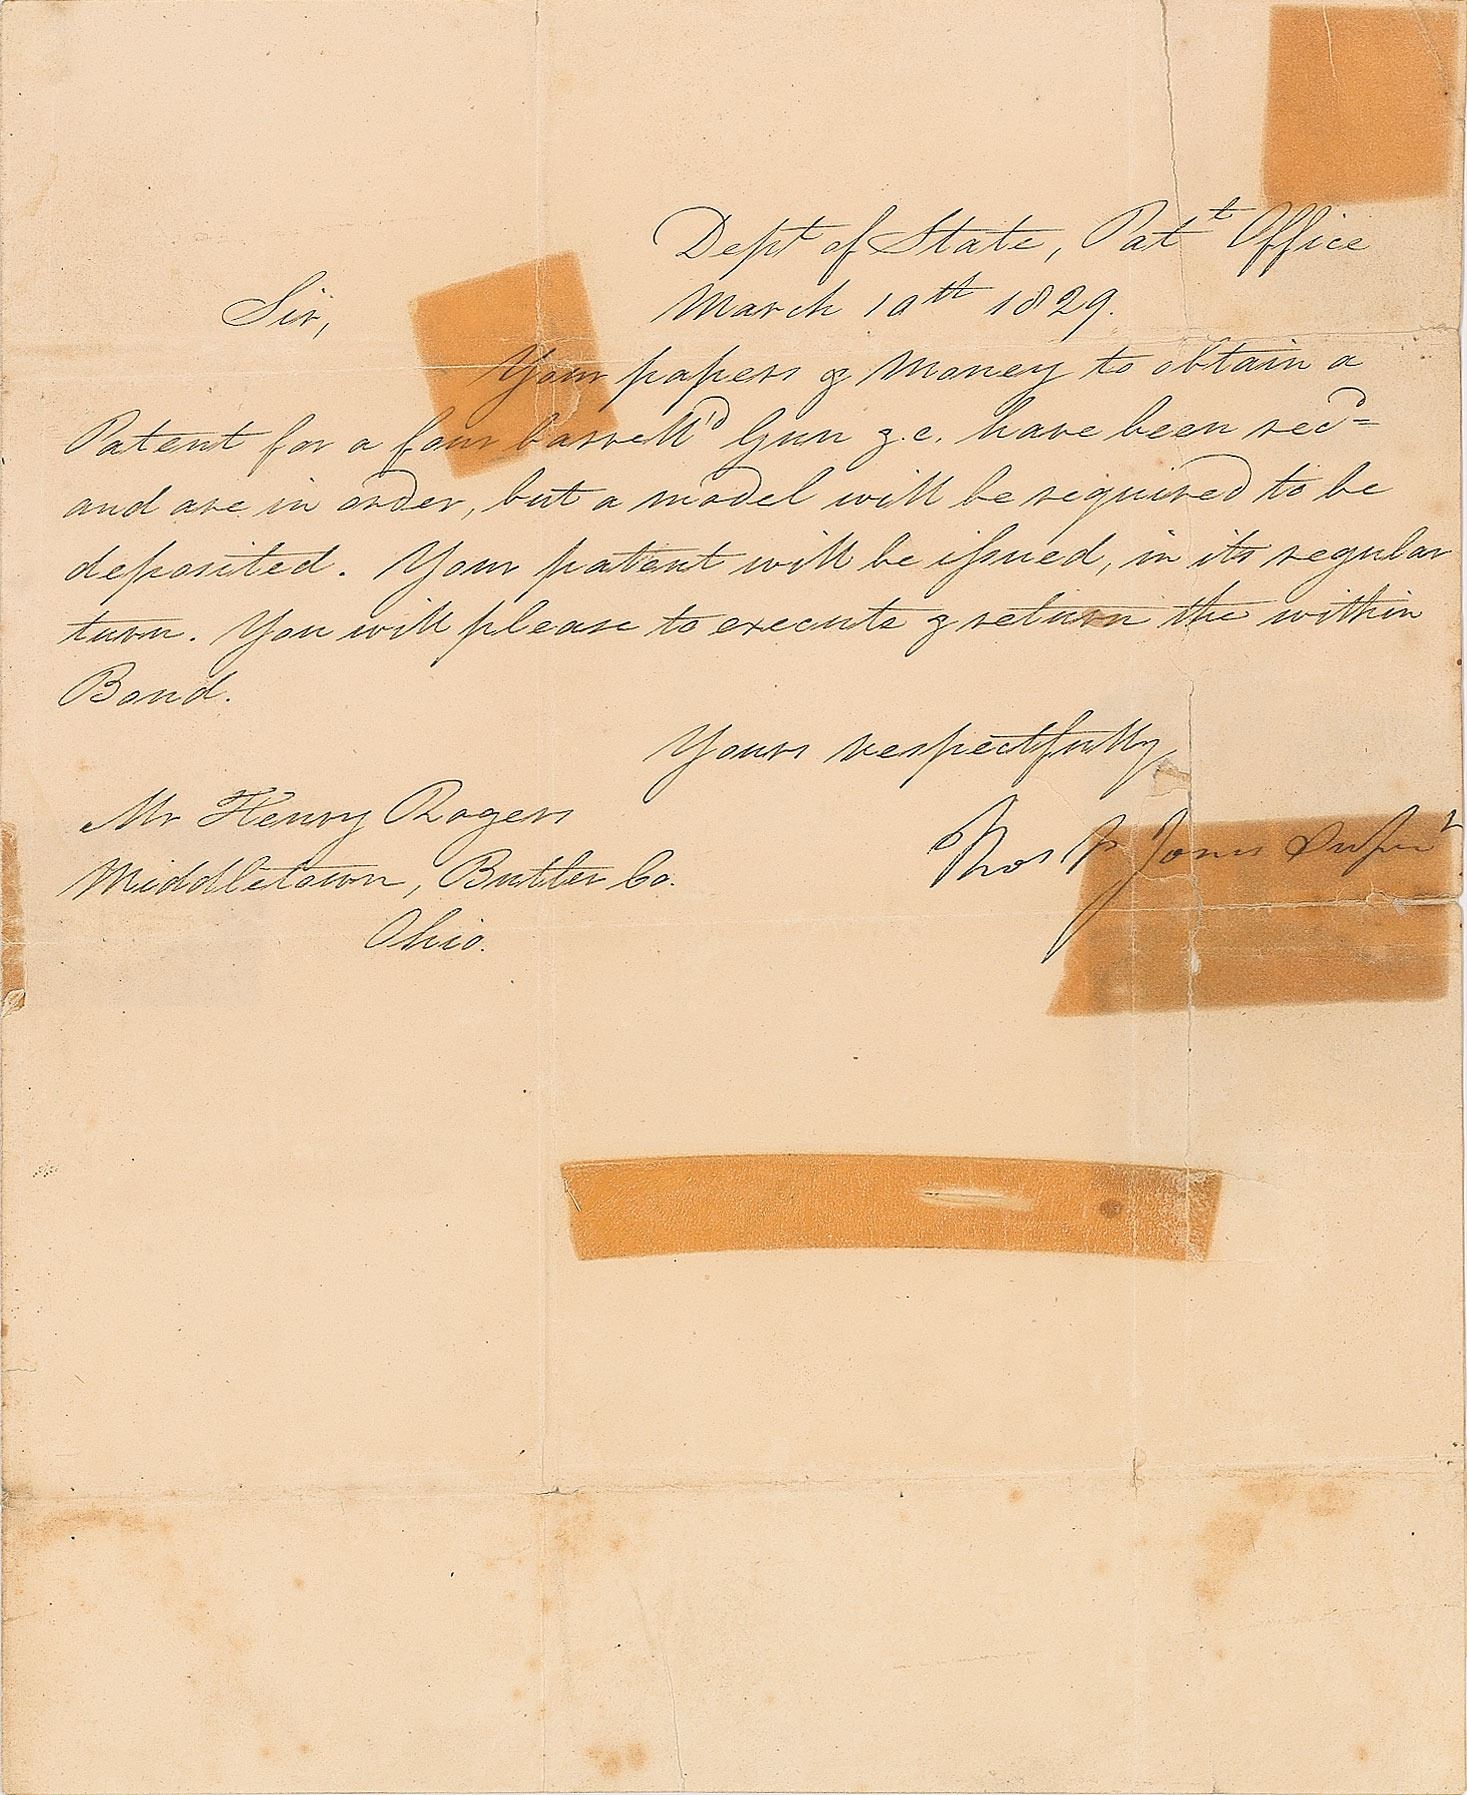 Dept of State, Patt Office
March 10th 1829.
Sir,
Your papers & Money to obtain a
Patent for a four barrell'd Gun &.c. have been recd=
and are in order, but a model will be required to be
deposited. Your patent will be issued, in its regular
turn. You will please to execute & return the within
Bond.
Yours respectfully
Thos P Jones Supert
Mr Henry Rogers
Middletown, Butler Co.
Ohio.